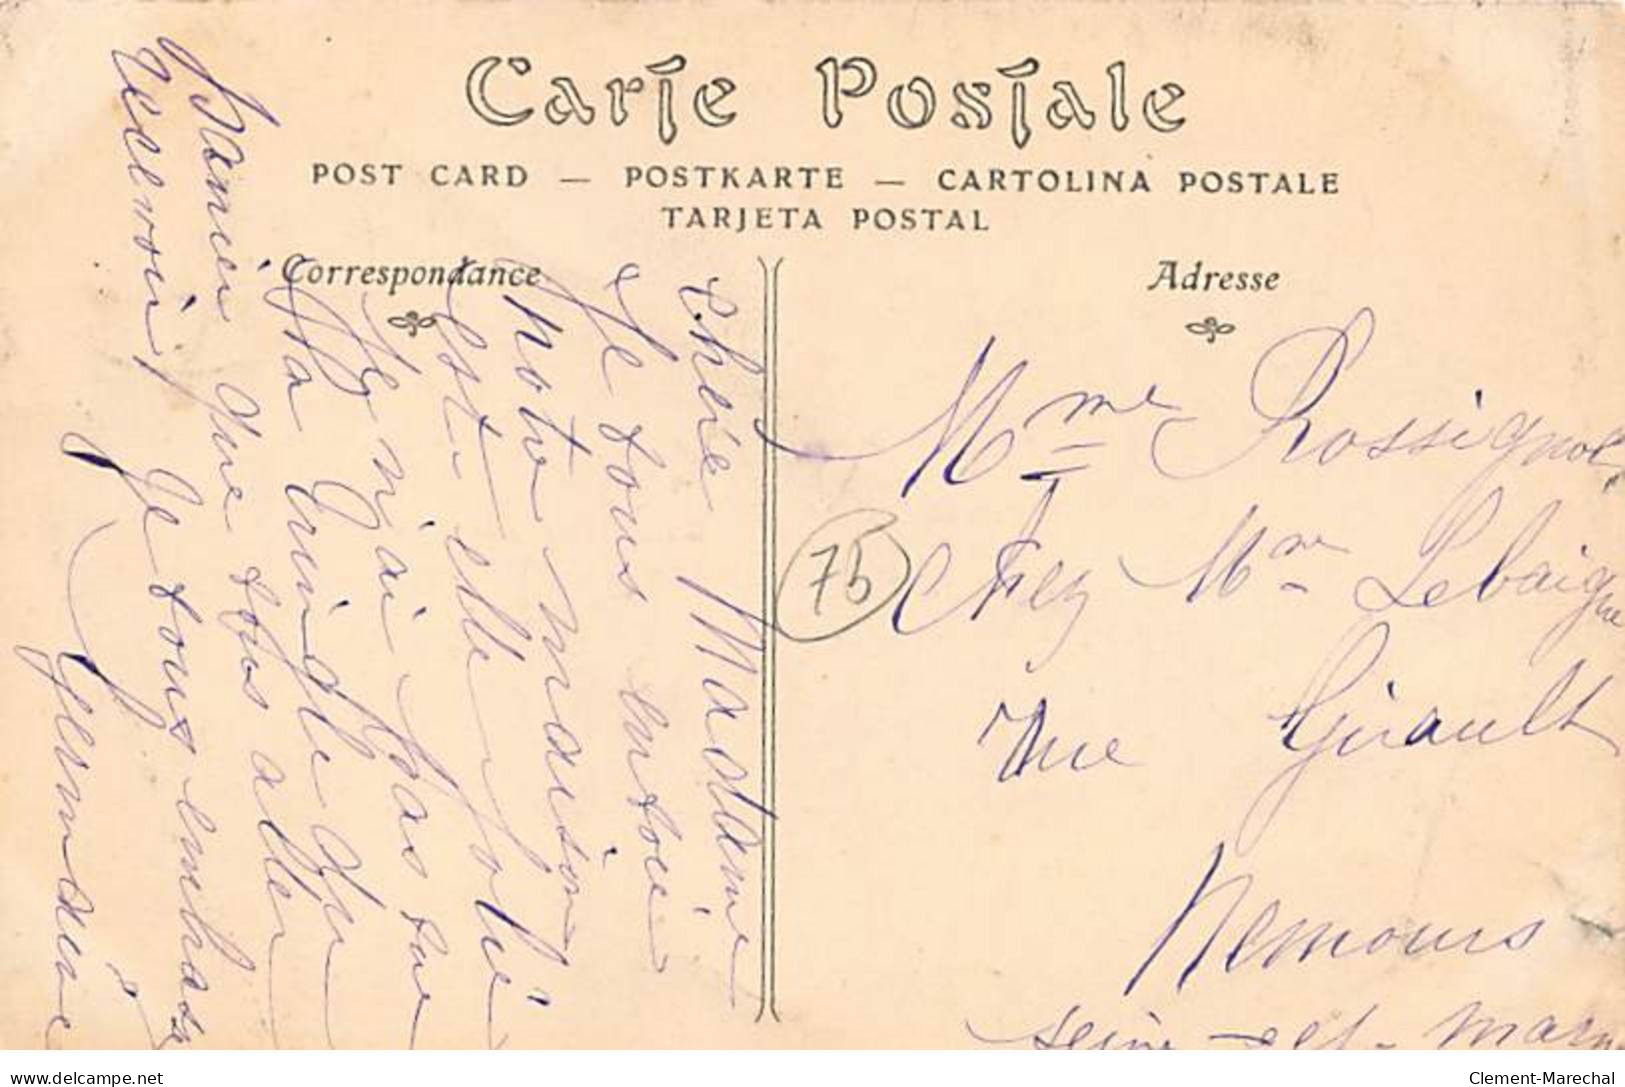 Carte Postale
POST CARD — POSTKARTE — CARTOLINA POSTALE
TARJETA POSTAL
Correspondance
Adresse
Chérie Madame
Je vous envoie
photo maison
est-elle jolie
Je n'ai pas pu
la
panier que vous allez
recevoir, Je vous embrasse
Germaine
Mme Rossignol
Chez Mme Lebaigue
Rue Girault
Nemours
Seine-et-Marne
75
delcampe.net
Clement-Marechal